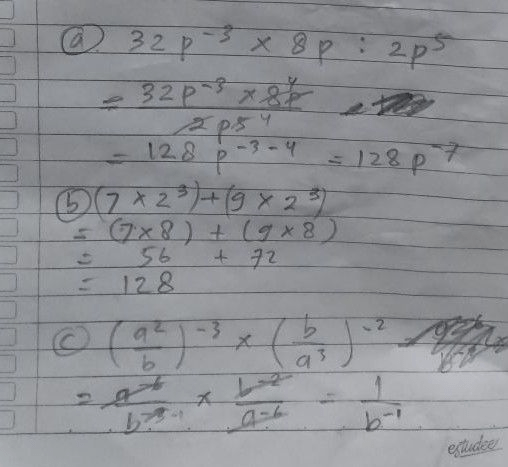 (a) 32p⁻³ × 8p : 2p⁵
= 32p⁻³ × 8p 4
2p5 4
= 128 p⁻³⁻⁴ = 128p⁻⁷
(b) (7 × 2³) + (9 × 2³)
= (7×8) + (9×8)
= 56 + 72
= 128
(c) (a²/b)⁻³ × (b/a³)⁻²
= a⁻⁶/b⁻³ ⁻¹ × b⁻²/a⁻⁶ = 1/b⁻¹
estudee